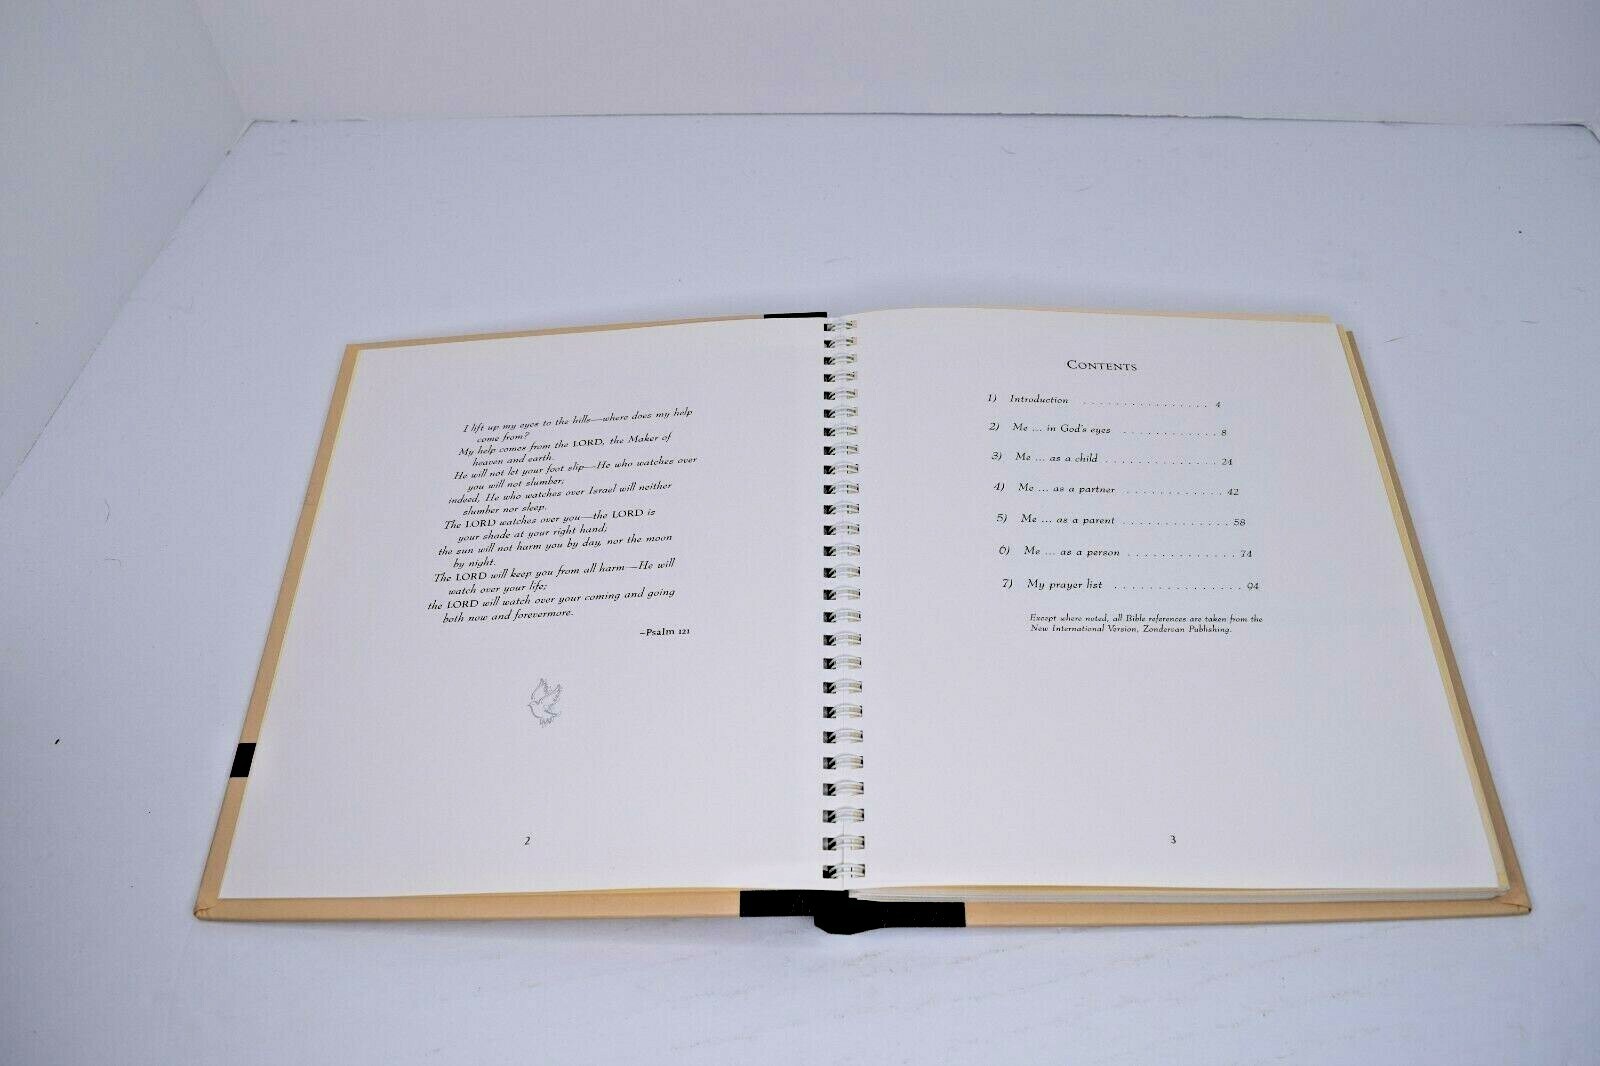 I lift up my eyes to the hills—where does my help
come from?
My help comes from the LORD, the Maker of
heaven and earth.
He will not let your foot slip—He who watches over
you will not slumber;
indeed, He who watches over Israel will neither
slumber nor sleep.
The LORD watches over you—the LORD is
your shade at your right hand;
the sun will not harm you by day, nor the moon
by night.
The LORD will keep you from all harm—He will
watch over your life;
the LORD will watch over your coming and going
both now and forevermore.
–Psalm 121
2
CONTENTS
1) Introduction . . . . . . . . . . . . . . . . 4
2) Me ... in God's eyes . . . . . . . . . . . . 8
3) Me ... as a child . . . . . . . . . . . . . . 24
4) Me ... as a partner . . . . . . . . . . . . . 42
5) Me ... as a parent . . . . . . . . . . . . . . 58
6) Me ... as a person . . . . . . . . . . . . . 74
7) My prayer list . . . . . . . . . . . . . . . 94
Except where noted, all Bible references are taken from the
New International Version, Zondervan Publishing.
3